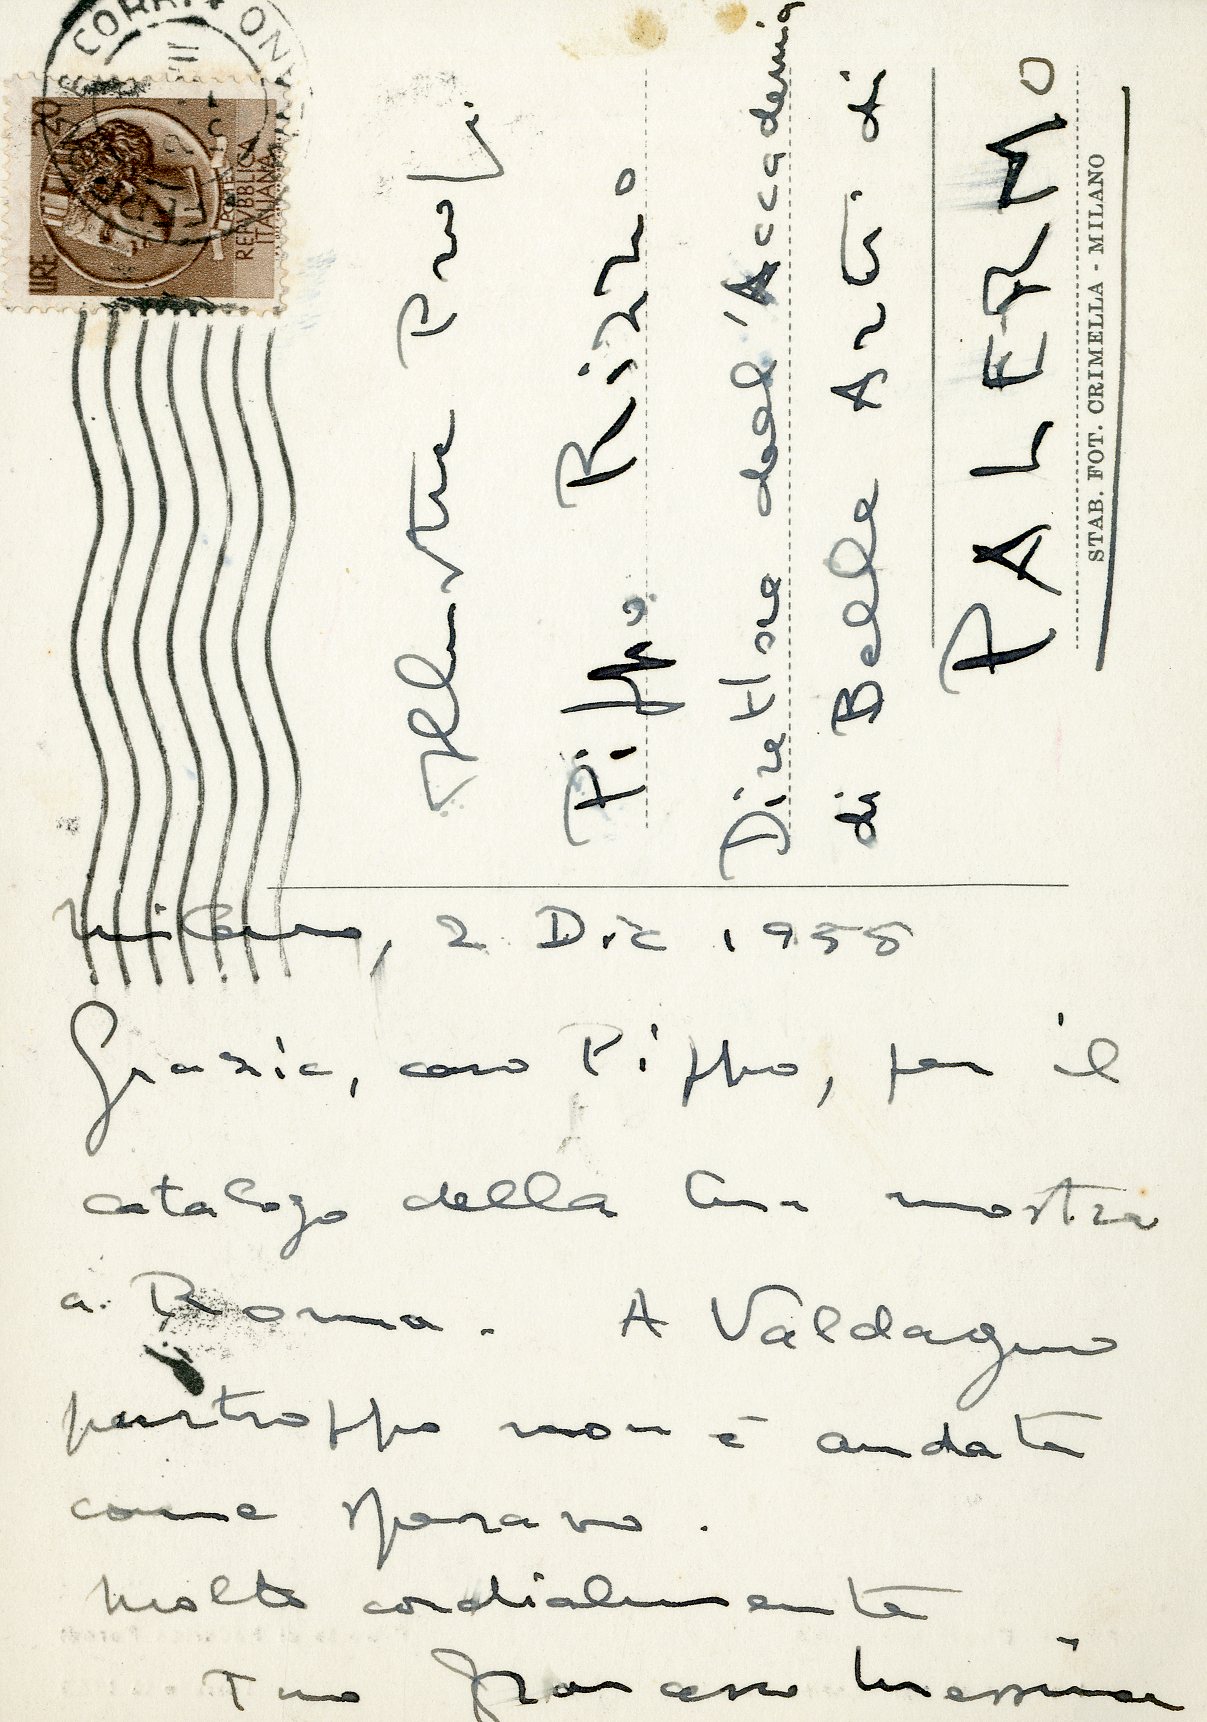 Milano, 2 Dic 1955
Grazie, caro Pippo, per il
catalogo della tua mostra
a Roma. A Valdagno
purtroppo non è andata
come speravo.
Molto cordialmente
Tuo Francesco Messina
Illustre Prof.
Pippo Rizzo
Direttore dell'Accademia
di Belle Arti di
PALERMO
STAB. FOT. CRIMELLA - MILANO
LIRE 20
REPVBBLICA
ITALIANA